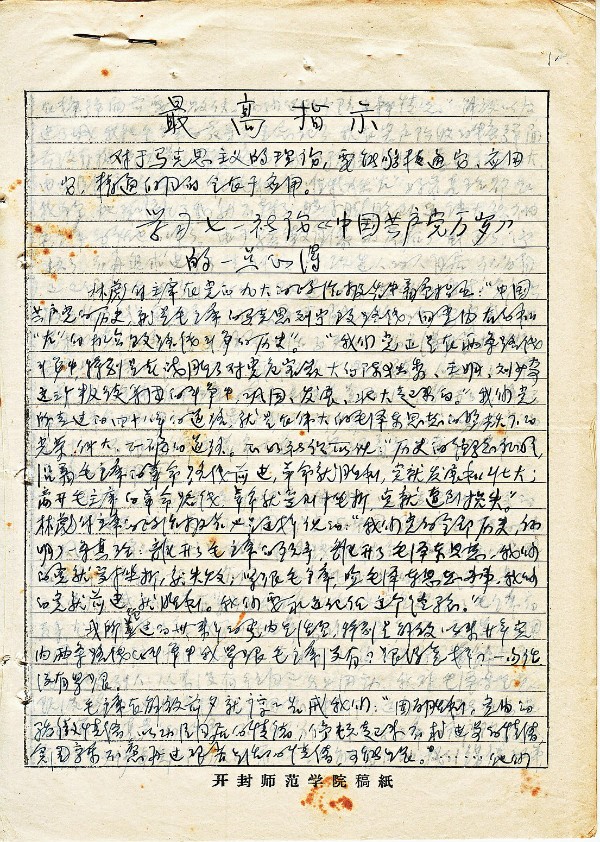 最高指示
对于马克思主义的理论，要能够精通它，应用
它，精通的目的全在于应用。
学习七一社论《中国共产党万岁》
的一点心得
林彪付主席在党的九大的政治报告中着重指出："中国
共产党的历史，就是毛主席的马克思列宁主义路线，同党内右的和
"左"的机会主义路线斗争的历史。""我们党正是在两条路线
斗争中，特别是在战胜了对党危害最大的陈独秀、王明、刘少奇
这三个叛徒集团的斗争中，巩固、发展、壮大起来的。"我们党
所走过的四十八年的道路，就是在伟大的毛泽东思想的照耀下的
光荣、伟大、正确的道路。正如社论所说："历史的结论证明，
沿着毛主席的革命路线前进，革命就胜利，党就发展和壮大；
离开毛主席的革命路线，革命就受到挫折，党就遭到损失。"
林彪付主席的政治报告也这样说的："我们党的全部历史，证
明了一条真理：离开了毛主席的领导，离开了毛泽东思想，我们
的党就受挫折，就失败；紧跟毛主席，照毛泽东思想办事，我们
的党就前进，就胜利。我们要永远记住这个经验。"
我所走过的廿来年的党内生活里，特别是解放以来廿年党
内两条路线斗争中我紧跟毛主席没有？
没有紧跟。
毛主席在解放前夕就谆谆告戒我们："因为胜利，党内的
骄傲情绪，以功臣自居的情绪，停顿起来不求进步的情绪，
贪图享乐不愿再过艰苦生活的情绪，可能生长。"……他们
开封师范学院稿紙